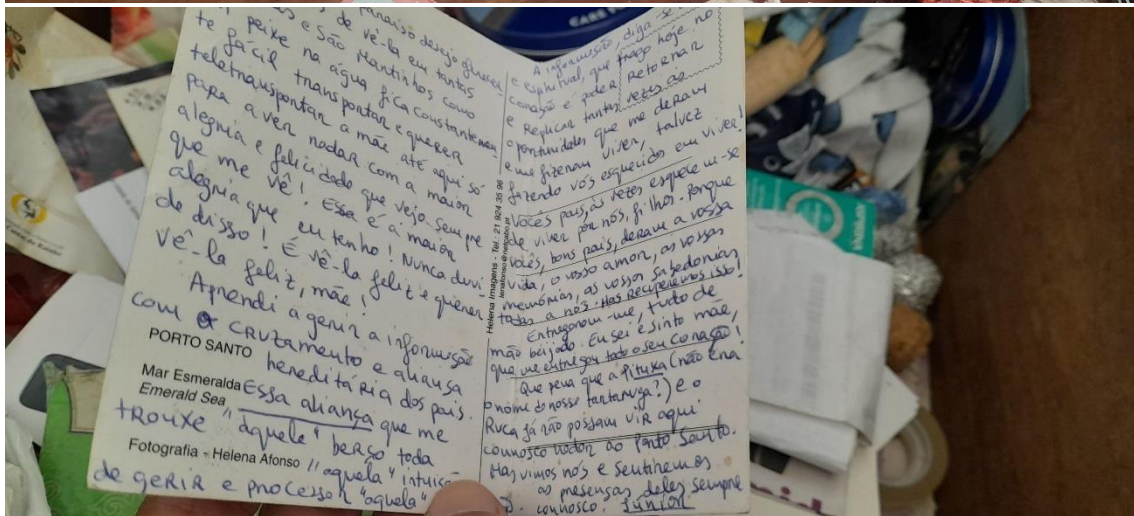 CARE
paraíso desejo
de vê-la em tantas
e São Martinhos como
peixe na água fica constantemen
te fácil transpontar e querer
teletransportar a mãe até aqui só
para a ver nadar com a maior
alegria e felicidade que vejo sempre
que me vê! Essa é a maior
alegria que eu tenho! Nunca duvi
de disso! É vê-la feliz e querer
vê-la feliz, mãe!
Aprendi a gerir a informação
com o cruzamento e aliança
PORTO SANTO
hereditária dos pais.
Mar Esmeralda
Emerald Sea
Essa aliança que me
trouxe "àquele" berço toda
Fotografia - Helena Afonso
"aquela"
de gerir e processar "aquela"
Helena Imagens - Tel.: 21 924 35 96
A informação, diga-se
e espiritual, que trago hoje no
coração é poder Retornar
e Replicar tantas vezes as
oportunidades que me deram
e me fizeram viver, talvez
fazendo vós esquecidos em viver!
Vocês pais, às vezes esquecem-se
de viver por nós, filhos. Porque
vocês, bons pais, deram a vossa
vida, o vosso amor, as vossas
memórias, as vossas sabedorias
todas a nós. Mas recuperemos isso!
Entregaram-me, tudo de
mão beijada. Eu sei e sinto mãe,
que me entregou todo o seu coração!
Que pena que a Pituxa (não era
o nome da nossa tartaruga?) e o
Ruca já não possam vir aqui
connosco nadar ao Porto Santo.
Mas vimos nós e sentiremos
as presenças deles sempre
connosco. Júnior